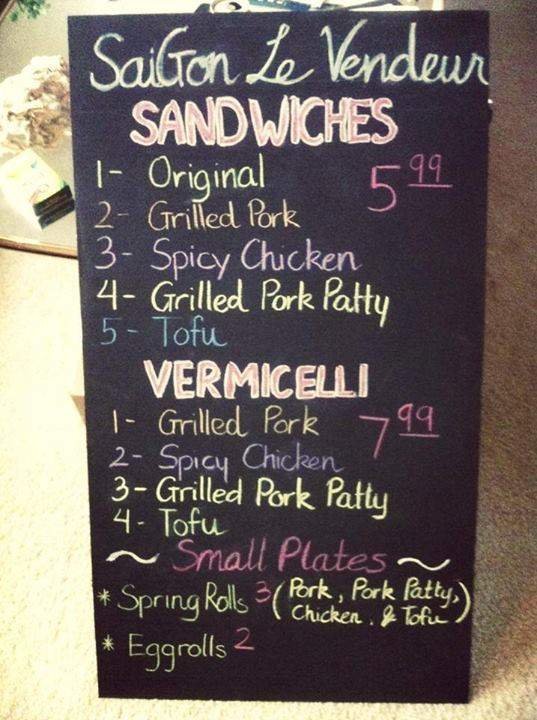 SaiGon Le Vendeur
SANDWICHES
1- Original 5 99
2- Grilled Pork
3- Spicy Chicken
4- Grilled Pork Patty
5- Tofu
VERMICELLI
1- Grilled Pork 7 99
2- Spicy Chicken
3- Grilled Pork Patty
4- Tofu
~ Small Plates ~
* Spring Rolls 3 (Pork, Pork Patty, Chicken, & Tofu)
* Eggrolls 2